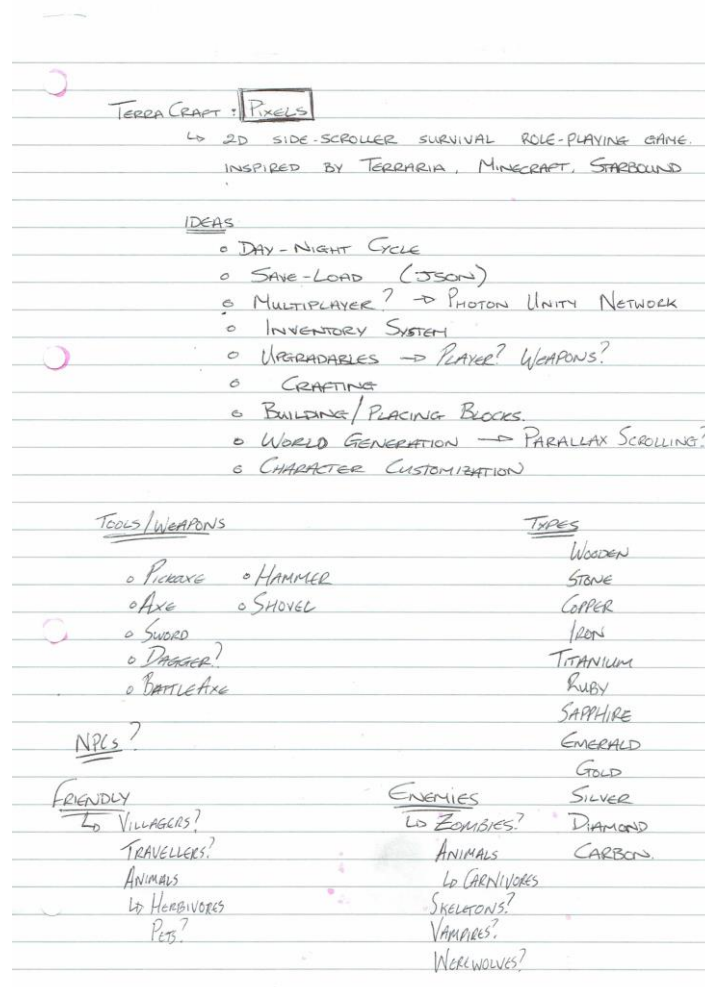 TERRA CRAFT : PIXELS
↳ 2D SIDE-SCROLLER SURVIVAL ROLE-PLAYING GAME.
INSPIRED BY TERRARIA, MINECRAFT, STARBOUND
IDEAS
o DAY-NIGHT CYCLE
o SAVE-LOAD (JSON)
o MULTIPLAYER? → PHOTON UNITY NETWORK
o INVENTORY SYSTEM
o UPGRADABLES → PLAYER? WEAPONS?
o CRAFTING
o BUILDING/PLACING BLOCKS.
o WORLD GENERATION → PARALLAX SCROLLING?
o CHARACTER CUSTOMIZATION
TOOLS/WEAPONS
o PICKAXE o HAMMER
o AXE o SHOVEL
o SWORD
o DAGGER?
o BATTLEAXE
TYPES
WOODEN
STONE
COPPER
IRON
TITANIUM
RUBY
SAPPHIRE
EMERALD
GOLD
SILVER
DIAMOND
CARBON.
NPCs?
FRIENDLY
↳ VILLAGERS?
TRAVELLERS?
ANIMALS
↳ HERBIVORES
PETS?
ENEMIES
↳ ZOMBIES?
ANIMALS
↳ CARNIVORES
SKELETONS?
VAMPIRES?
WEREWOLVES?